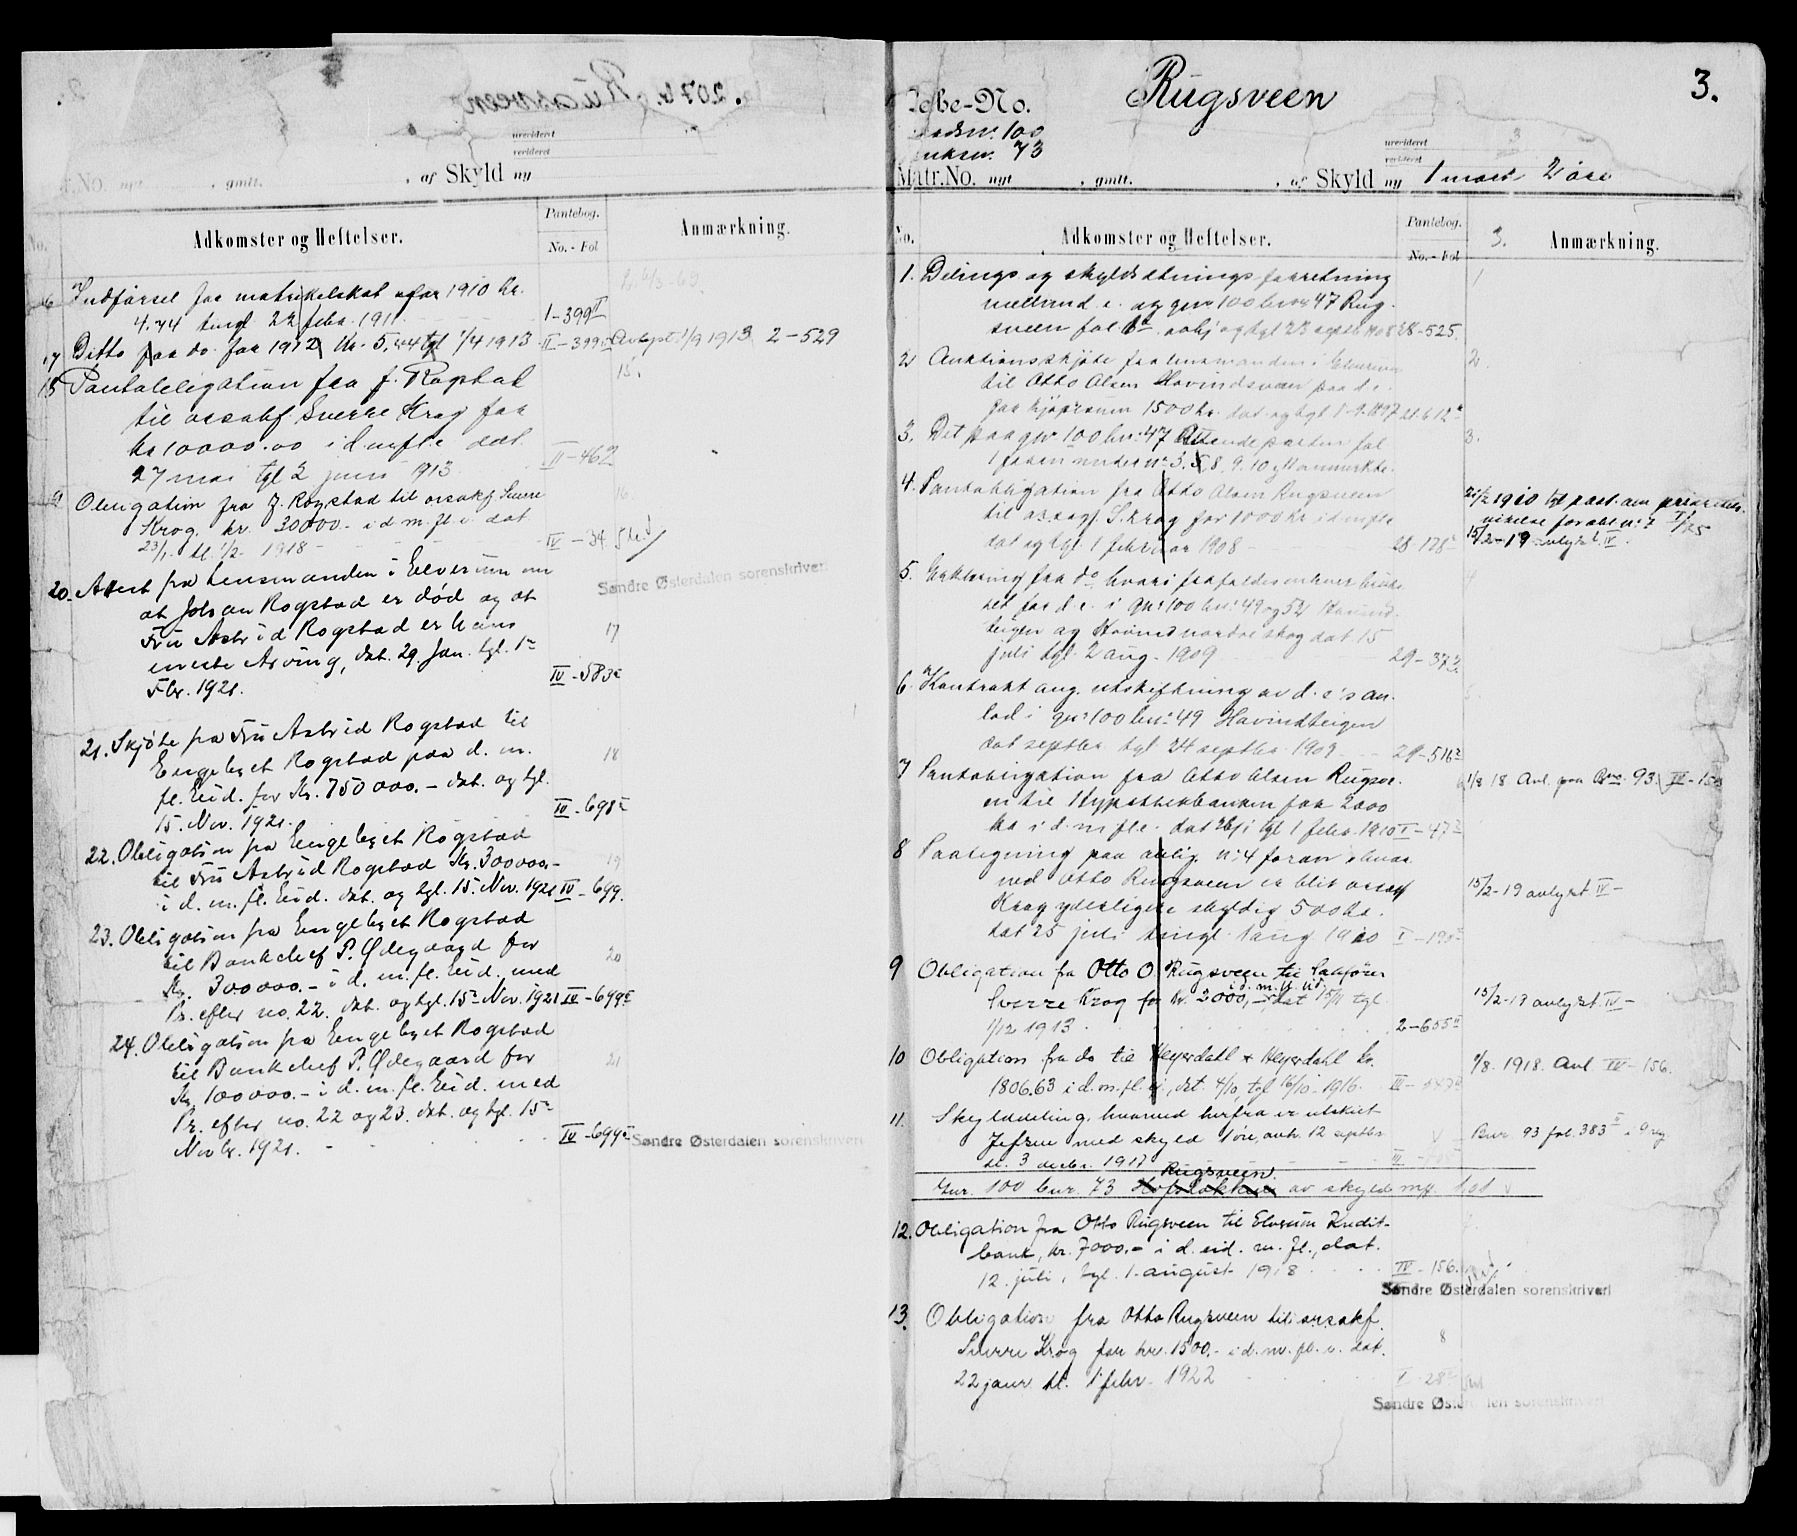 t.No. nyt , gmlt. , af Skyld ny
urevideret
revideret
No.
Adkomster og Heftelser.
Pantebog.
No. - Fol
Anmærkning.
6 Indførsel for matrikelskat for 1910 kr.
4.44 tingl. 22 febr. 1911 1-399
17 Ditto for do. for 1912 kr. 5,44 tgl 1/4 1913 II-399 Avlyst 1/9 1913 2-529
18 Pantobligation fra J. Rogstad 15.
til orsakf. Sverre Krog for
kr 10000.00 i d. m fl. e dat.
27 mai tgl 2 juni 1913. II-462
Obligation fra J. Rogstad til orsakf Sverre 16.
Krog, kr. 30000.- i d m. fl. e. dat
23/1 tl. 1/2 1918 - IV-34
Søndre Østerdalen sorenskriveri
20. Attest fra lensmanden i Elverum om
at Johan Rogstad er død og at
Fru Astrid Rogstad er hans 17
eneste Arving, dat. 29. Jan. tgl. 1ste
Fbr. 1921. IV-583
21. Skjøte fra Fru Astrid Rogstad til
Engebret Rogstad paa d. m. 18
fl. Eid. for Kr. 750 000.- dat. og tgl.
15. Nov. 1921. IV-698
22. Obligation fra Engebret Rogstad
til Fru Astrid Rogstad Kr. 300000.- 19
i d. m. fl. Eid. dat. og tgl. 15. Nov. 1921 IV-699.
23. Obligation fra Engebret Rogstad
til Bankchef P. Ødegaard for 20
Kr. 300000.- i d. m. fl. Eid. med
Pr. efter no. 22. dat. og tgl. 15 Nov. 1921 IV-699
24. Obligation fra Engebret Rogstad
til Bankchef P. Ødegaard for 21
Kr. 100000.- i d. m. fl. Eid. med
Pr. efter no. 22 og 23. dat. og tgl. 15
Novbr. 1921. IV-699 Søndre Østerdalen sorenskriveri
Rugsveen 3.
Løbe-No.
Gaardsnr. 100
Bruksnr. 73
urevideret 3
revideret
Matr.No. nyt , gmlt. , af Skyld ny 1 mark 2 øre
No.
Adkomster og Heftelser.
Pantebog.
No. - Fol
3. Anmærkning.
1. Delings og skyldsætnings forretning 1
mellem d. e. og gnr 100 bnr 47 Rug-
sveen fol. avhj og tgl 23 septbr 1108 28-525.
2 Auktionsskjøte fra lensmanden i Elverum 2.
til Otto Olsen Hovindsveen paa d. e.
for kjøpesum 1500 kr. dat. og tgl 1-9-1897 21-612
3. Det paa gnr 100 bnr. 47 vedkommende fol 3.
1 foran under nr 3. 5, 8. 9. 10 gl anmerkte.
4. Pantobligation fra Otto Olsen Rugsveen
til os. sagf. S. Krog for 1000 kr i d m fl e
dat og tgl. 1 februar 1908 - 28 178
21/2 1910 tgl paat. om prioritets-
vikelse for obl nr 7 I/75
15/2-19 avlyst IV.
5. Erklæring fra do hvori frafaldes enhver bruks 4
ret for d. e. i gnr 100 bnr. 49 og 52 Hovind-
teigen og Hovind nordre skog dat 15
juli tgl. 2 aug. 1909 29-373
6. Kontrakt ang. utskiftning av d. e's an- 5.
lod i gnr 100 bnr 49 Hovindteigen
dat septbr tgl 24 septbr. 1909 29-516
7 Pantobligation fra Otto Olsen Rugsve-
en til Hypothekbanken for 2000
kr i d. m fl e. dat 26/1 tgl 1 febr. 1910 I-47
1/8 18 Avl. paa Bno. 93. IV-156
8 Paategning paa oblig nr 4 foran hvor
ved Otto Rugsveen er blit orsakf
Krog yderligere skyldig 500 kr.
dat 25 juli tingl. 1 aug 1910 I-198
15/2-19 avlyst IV-
9 Obligation fra Otto O. Rugsveen til Sakfører
i d. m. fl. eid.
Sverre Krog for kr. 2000,- dat 15/11 tgl.
1/12 1913 2-655
15/2-19 avlyst IV-
10 Obligation fra do til Heyerdahl & Heyerdahl kr.
1806.63 i d. m. fl. ei., dat. 4/10, tgl 16/10-1916. III-547
1/8. 1918. Avl IV-156.
11. Skylddeling, hvorved herfra er utskilt
Jefsen med skyld 1 øre, avh. 12 septbr
tl. 3 decbr. 1917 III-
Bnr 93 fol. 383 i 9 reg
Rugsveen
Gnr. 100 bnr. 73 av skyld mk. 1,01
12. Obligation fra Otto Rugsveen til Elverum Kredit-
bank, kr. 7000.- i d. eid. m. fl., dat.
12. juli, tgl. 1. august 1918 IV-156.
Søndre Østerdalen sorenskriveri
13. Obligation fra Otto Rugsveen til orsakf.
Sverre Krog for kr. 1500.- i d. m. fl. e. dat. 8
22 janr. tl. 1 febr. 1922 V-28
Søndre Østerdalen sorenskriveri